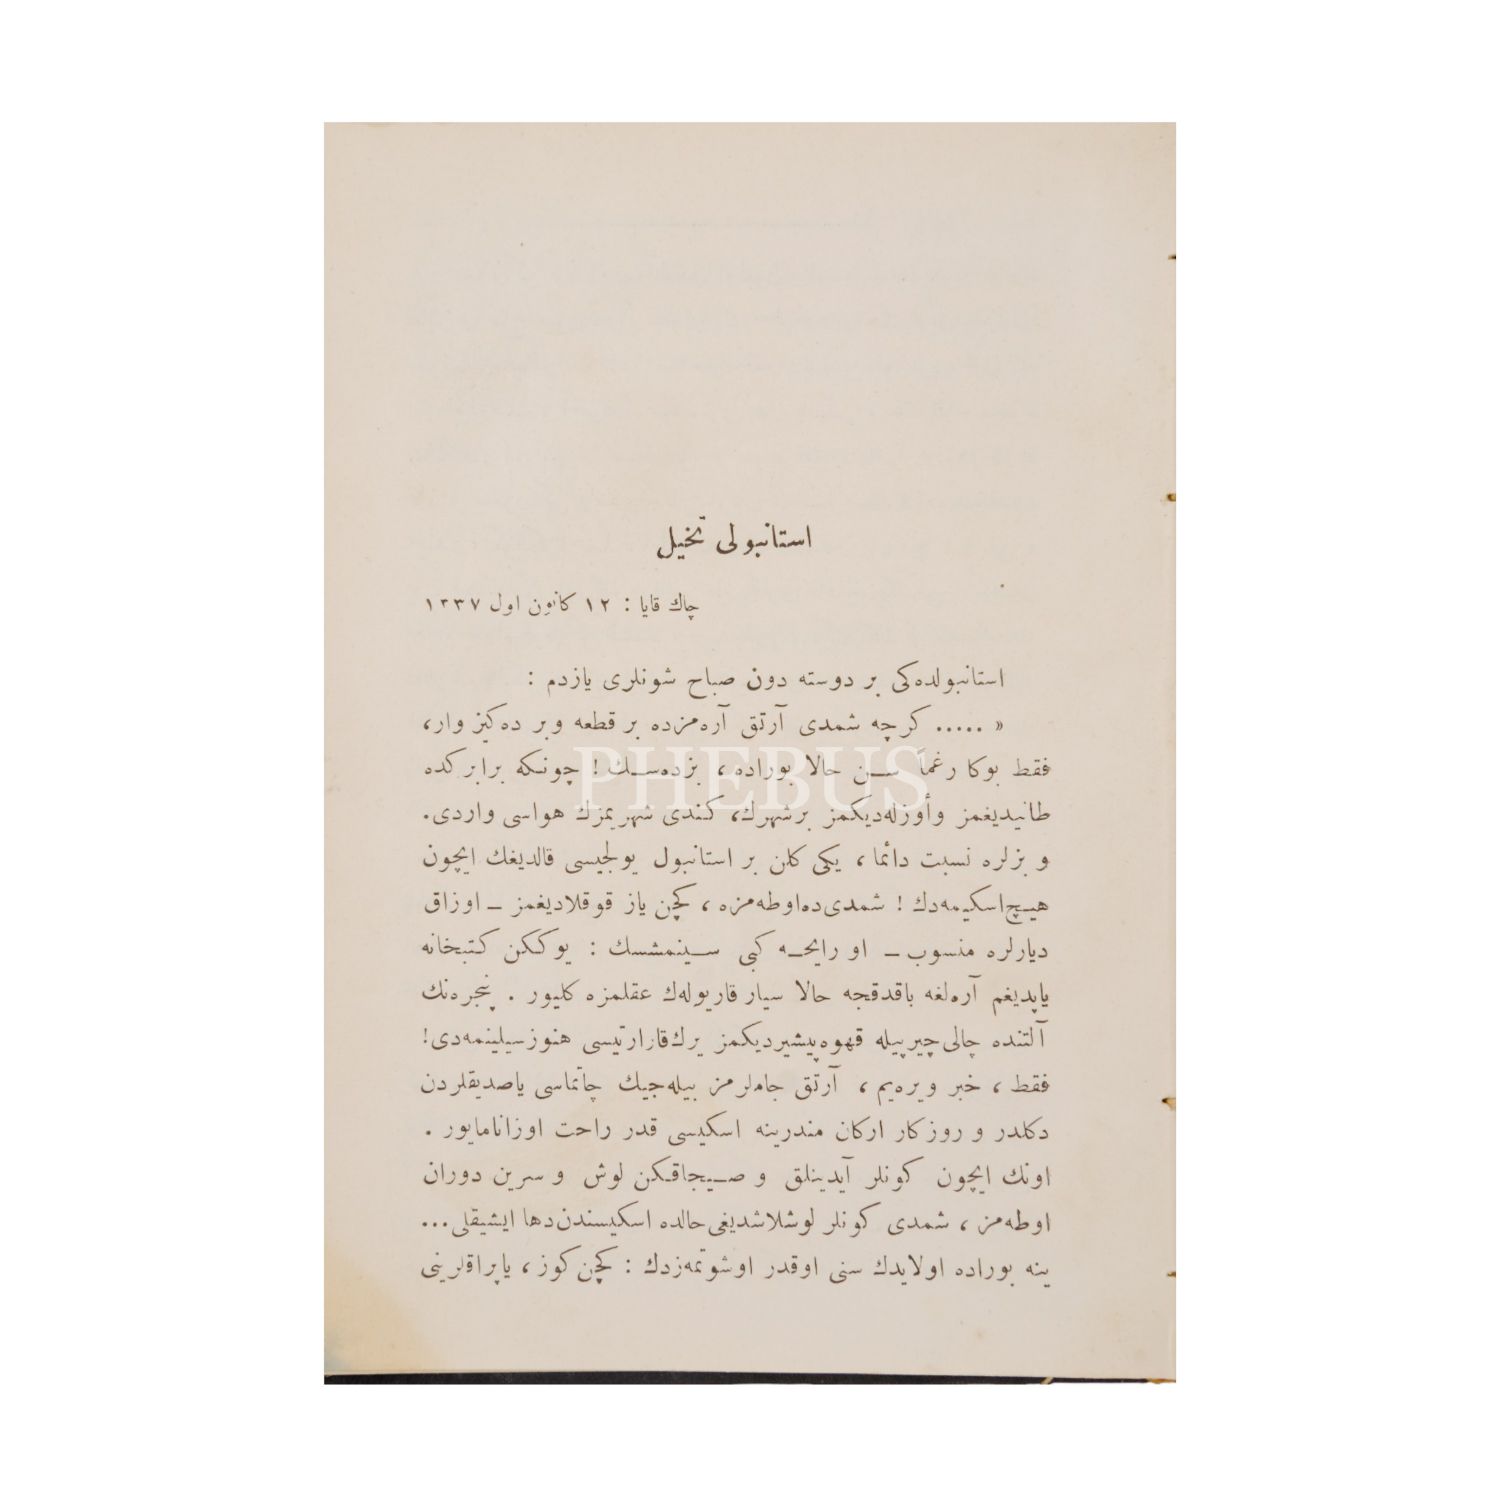 استانبولی تخیل
چاك قایا : ١٢ كانون اول ١٣٣٧
استانبولده‌كی بر دوسته دون صباح شونلری یازدم :
« ..... كرچه شمدی آرتق آره‌مزده بر قطعه وبر ده‌كیز وار،
فقط بوكا رغماً سـن حالا بوراده، بزده‌سـك! چونكه برابر كده
طانیدیغمز وأوزله‌دیكمز برشهرك، كندی شهریمزك هواسی واردی.
و بزلره نسبت دائما ، یكی كلن بر استانبول یولجیسی قالدیغك ایچون
هیـچ اسكیمه‌دك ! شمدی‌ده اوطه‌مزه ، كچن یاز قوقلادیغمز ــ اوزاق
دیارلره منسوب ــ او رایحـه كبی سـینمشسك : یوككن كتبخانه
یاپدیغم آره‌لغه باقدقجه حالا سیار قاریوله‌ك عقلمزه كلیور . پنجره‌نك
آلتنده چالی چیرپیله قهوه پیشیردیكمز یرك قارارتیسی هنوز سیلینمه‌دی!
فقط ، خبر ویره‌یم ، آرتق جاملرمز بیله‌جیك چاتماسی یاصدیقلردن
دكلدر و روزكار اركان مندرینه اسكیسی قدر راحت اوزانامایور .
اونك ایچون كونلر آیدینلق و صـیجاقكن لوش و سرین دوران
اوطه‌مز ، شمدی كونلر لوشلاشدیغی حالده اسكیسندن دها ایشیقلی...
ینه بوراده اولایدك سنی اوقدر اوشوتمه‌زدك : كچن كوز ، یاپراقلرینی
PHEBUS